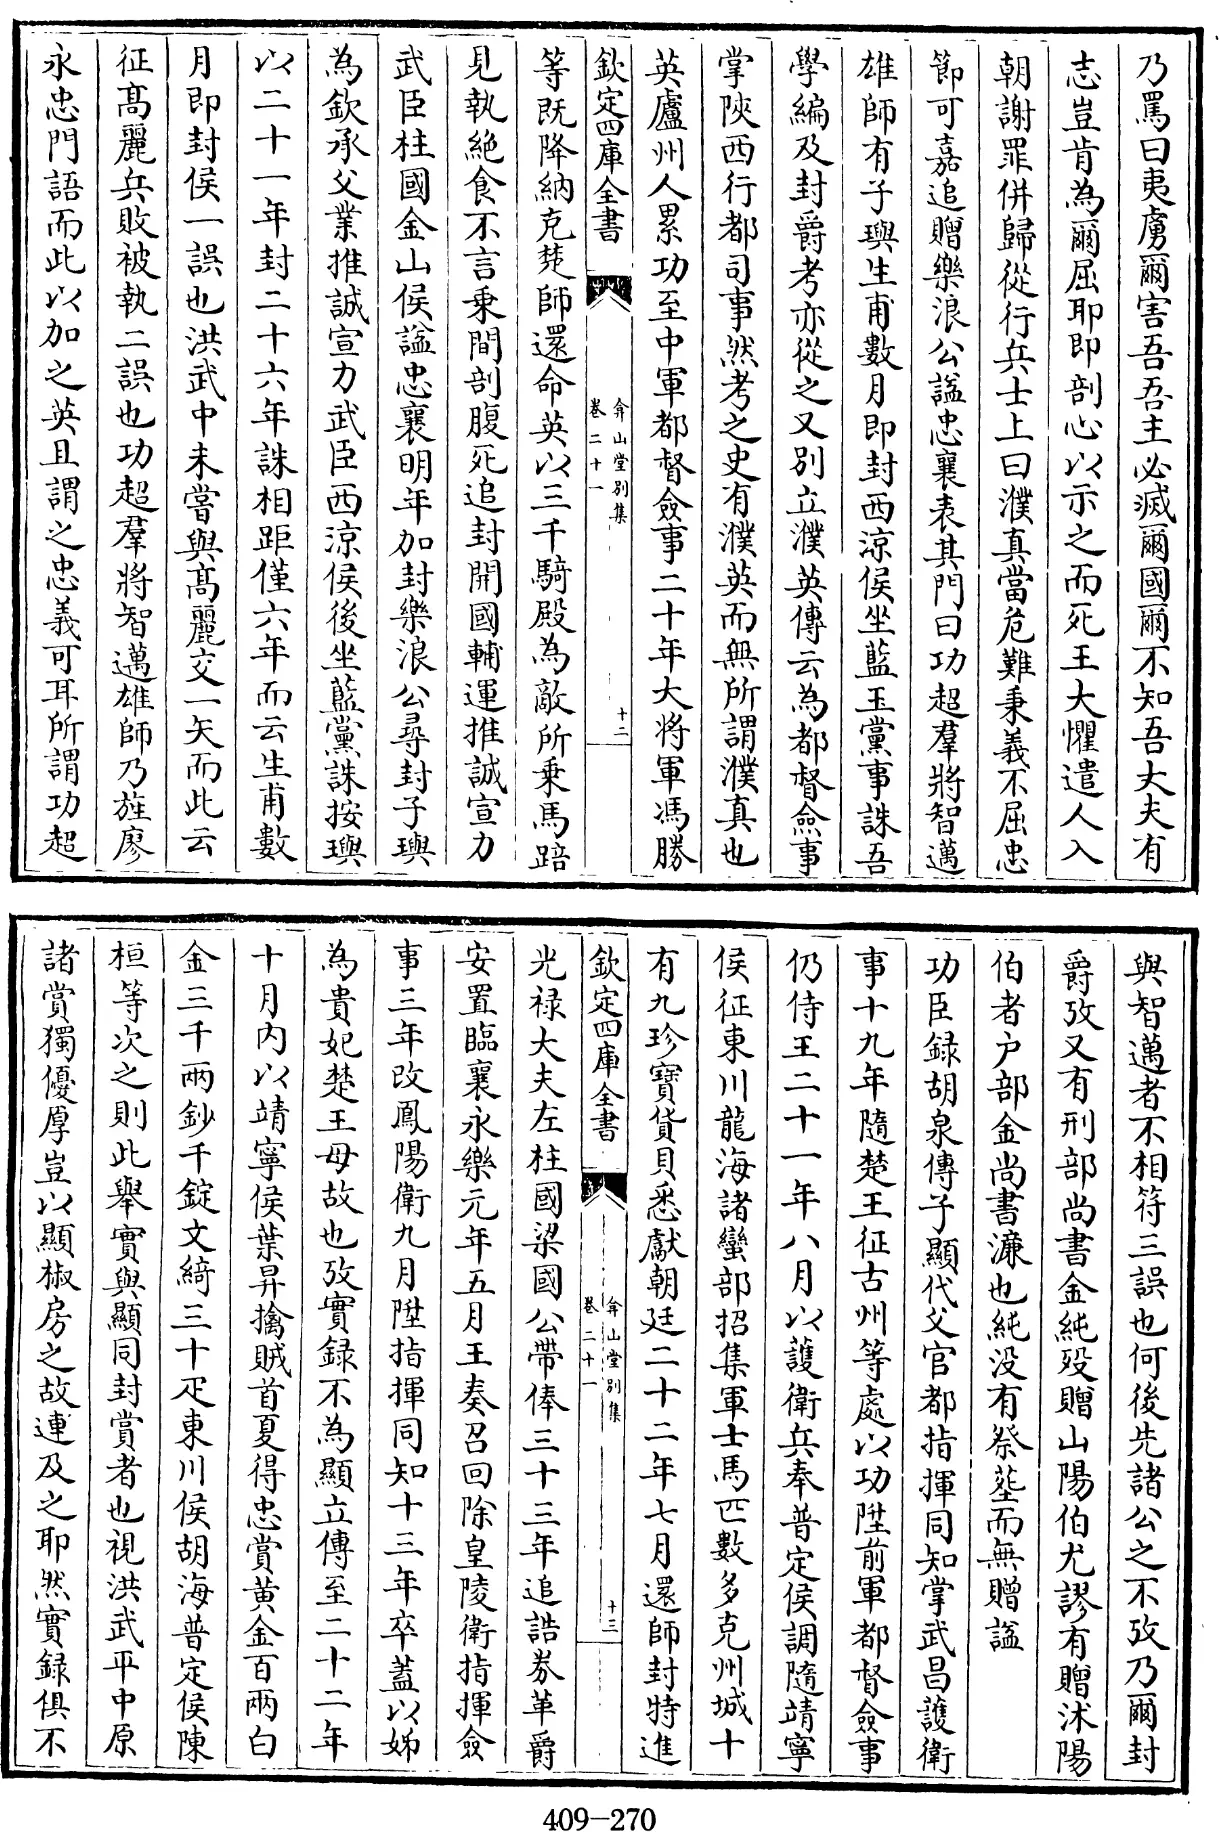 乃罵曰夷虜爾害吾吾主必滅爾國爾不知吾大夫有
志豈肯為爾屈耶即剖心以示之而死王大懼遣人入
朝謝罪併歸從行兵士上曰濮真當危難秉義不屈忠
節可嘉追贈樂浪公諡忠襄表其門曰功超羣將智邁
雄師有子璵生甫數月即封西涼侯坐藍玉黨事誅吾
學編及封爵考亦從之又別立濮英傳云為都督僉事
掌陜西行都司事然考之史有濮英而無所謂濮真也
英廬州人累功至中軍都督僉事二十年大將軍馮勝
欽定四庫全書
弇山堂別集
卷二十一
十二
等既降納克楚師還命英以三千騎殿為敵所乗馬踣
見執絶食不言乗間剖腹死追封開國輔運推誠宣力
武臣柱國金山侯諡忠襄明年加封樂浪公尋封子璵
為欽承父業推誠宣力武臣西涼侯後坐藍黨誅按璵
以二十一年封二十六年誅相距僅六年而云生甫數
月即封侯一誤也洪武中未嘗與髙麗交一矢而此云
征髙麗兵敗被執二誤也功超羣將智邁雄師乃旌廖
永忠門語而此以加之英且謂之忠義可耳所謂功超
與智邁者不相符三誤也何後先諸公之不攷乃爾封
爵攷又有刑部尚書金純歿贈山陽伯尤謬有贈沭陽
伯者户部金尚書濂也純没有祭塟而無贈諡
功臣録胡泉傳子顯代父官都指揮同知掌武昌護衛
事十九年隨楚王征古州等處以功陞前軍都督僉事
仍侍王二十一年八月以護衛兵奉普定侯調隨靖寧
侯征東川龍海諸蠻部招集軍士馬匹數多克州城十
有九珍寶貨貝悉獻朝廷二十二年七月還師封特進
欽定四庫全書
弇山堂別集
卷二十一
十三
光禄大夫左柱國梁國公帶俸三十三年追誥劵革爵
安置臨襄永樂元年五月王奏召回除皇陵衛指揮僉
事三年改鳳陽衛九月陞指揮同知十三年卒蓋以姊
為貴妃楚王母故也攷實録不為顯立傳至二十二年
十月内以靖寧侯葉昇擒賊首夏得忠賞黄金百兩白
金三千兩鈔千錠文綺三十疋東川侯胡海普定侯陳
桓等次之則此舉實與顯同封賞者也視洪武平中原
諸賞獨優厚豈以顯椒房之故連及之耶然實録俱不
409-270